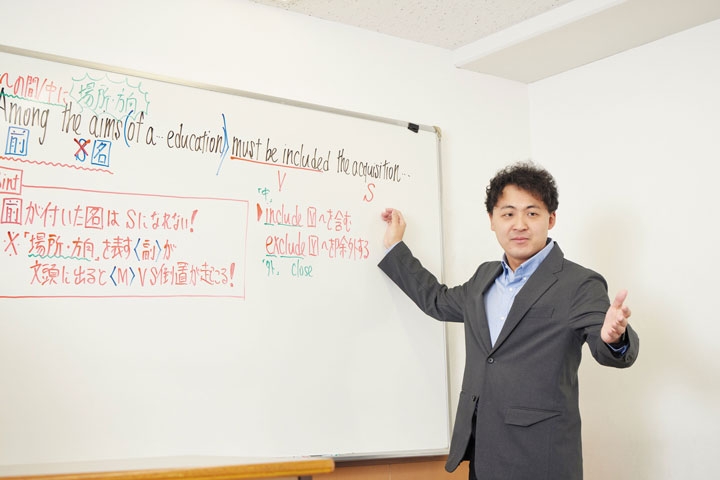 への間/中に 場所・方向
Among the aims (of a … education) must be included the acquisition …
前 S 名 V S
point
前が付いた名はSになれない!
※「場所・方向」を表す〈副〉が
文頭に出ると〈M〉VS倒置が起こる!
"中"
include Yへを含む
exclude Yへを除外する
"外" close